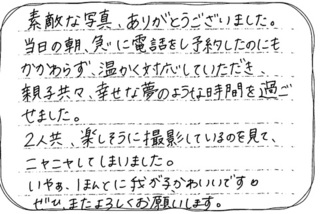 素敵な写真、ありがとうございました。
当日の朝、急に電話をし予約したのにも
かかわらず、温かく対応していただき、
親子共々、幸せな夢のような時間を過ご
せました。
2人共、楽しそうに撮影しているのを見て、
ニヤニヤしてしまいました。
いやぁ、ほんとに我が子かわいいです
ぜひ、またよろしくお願いします。